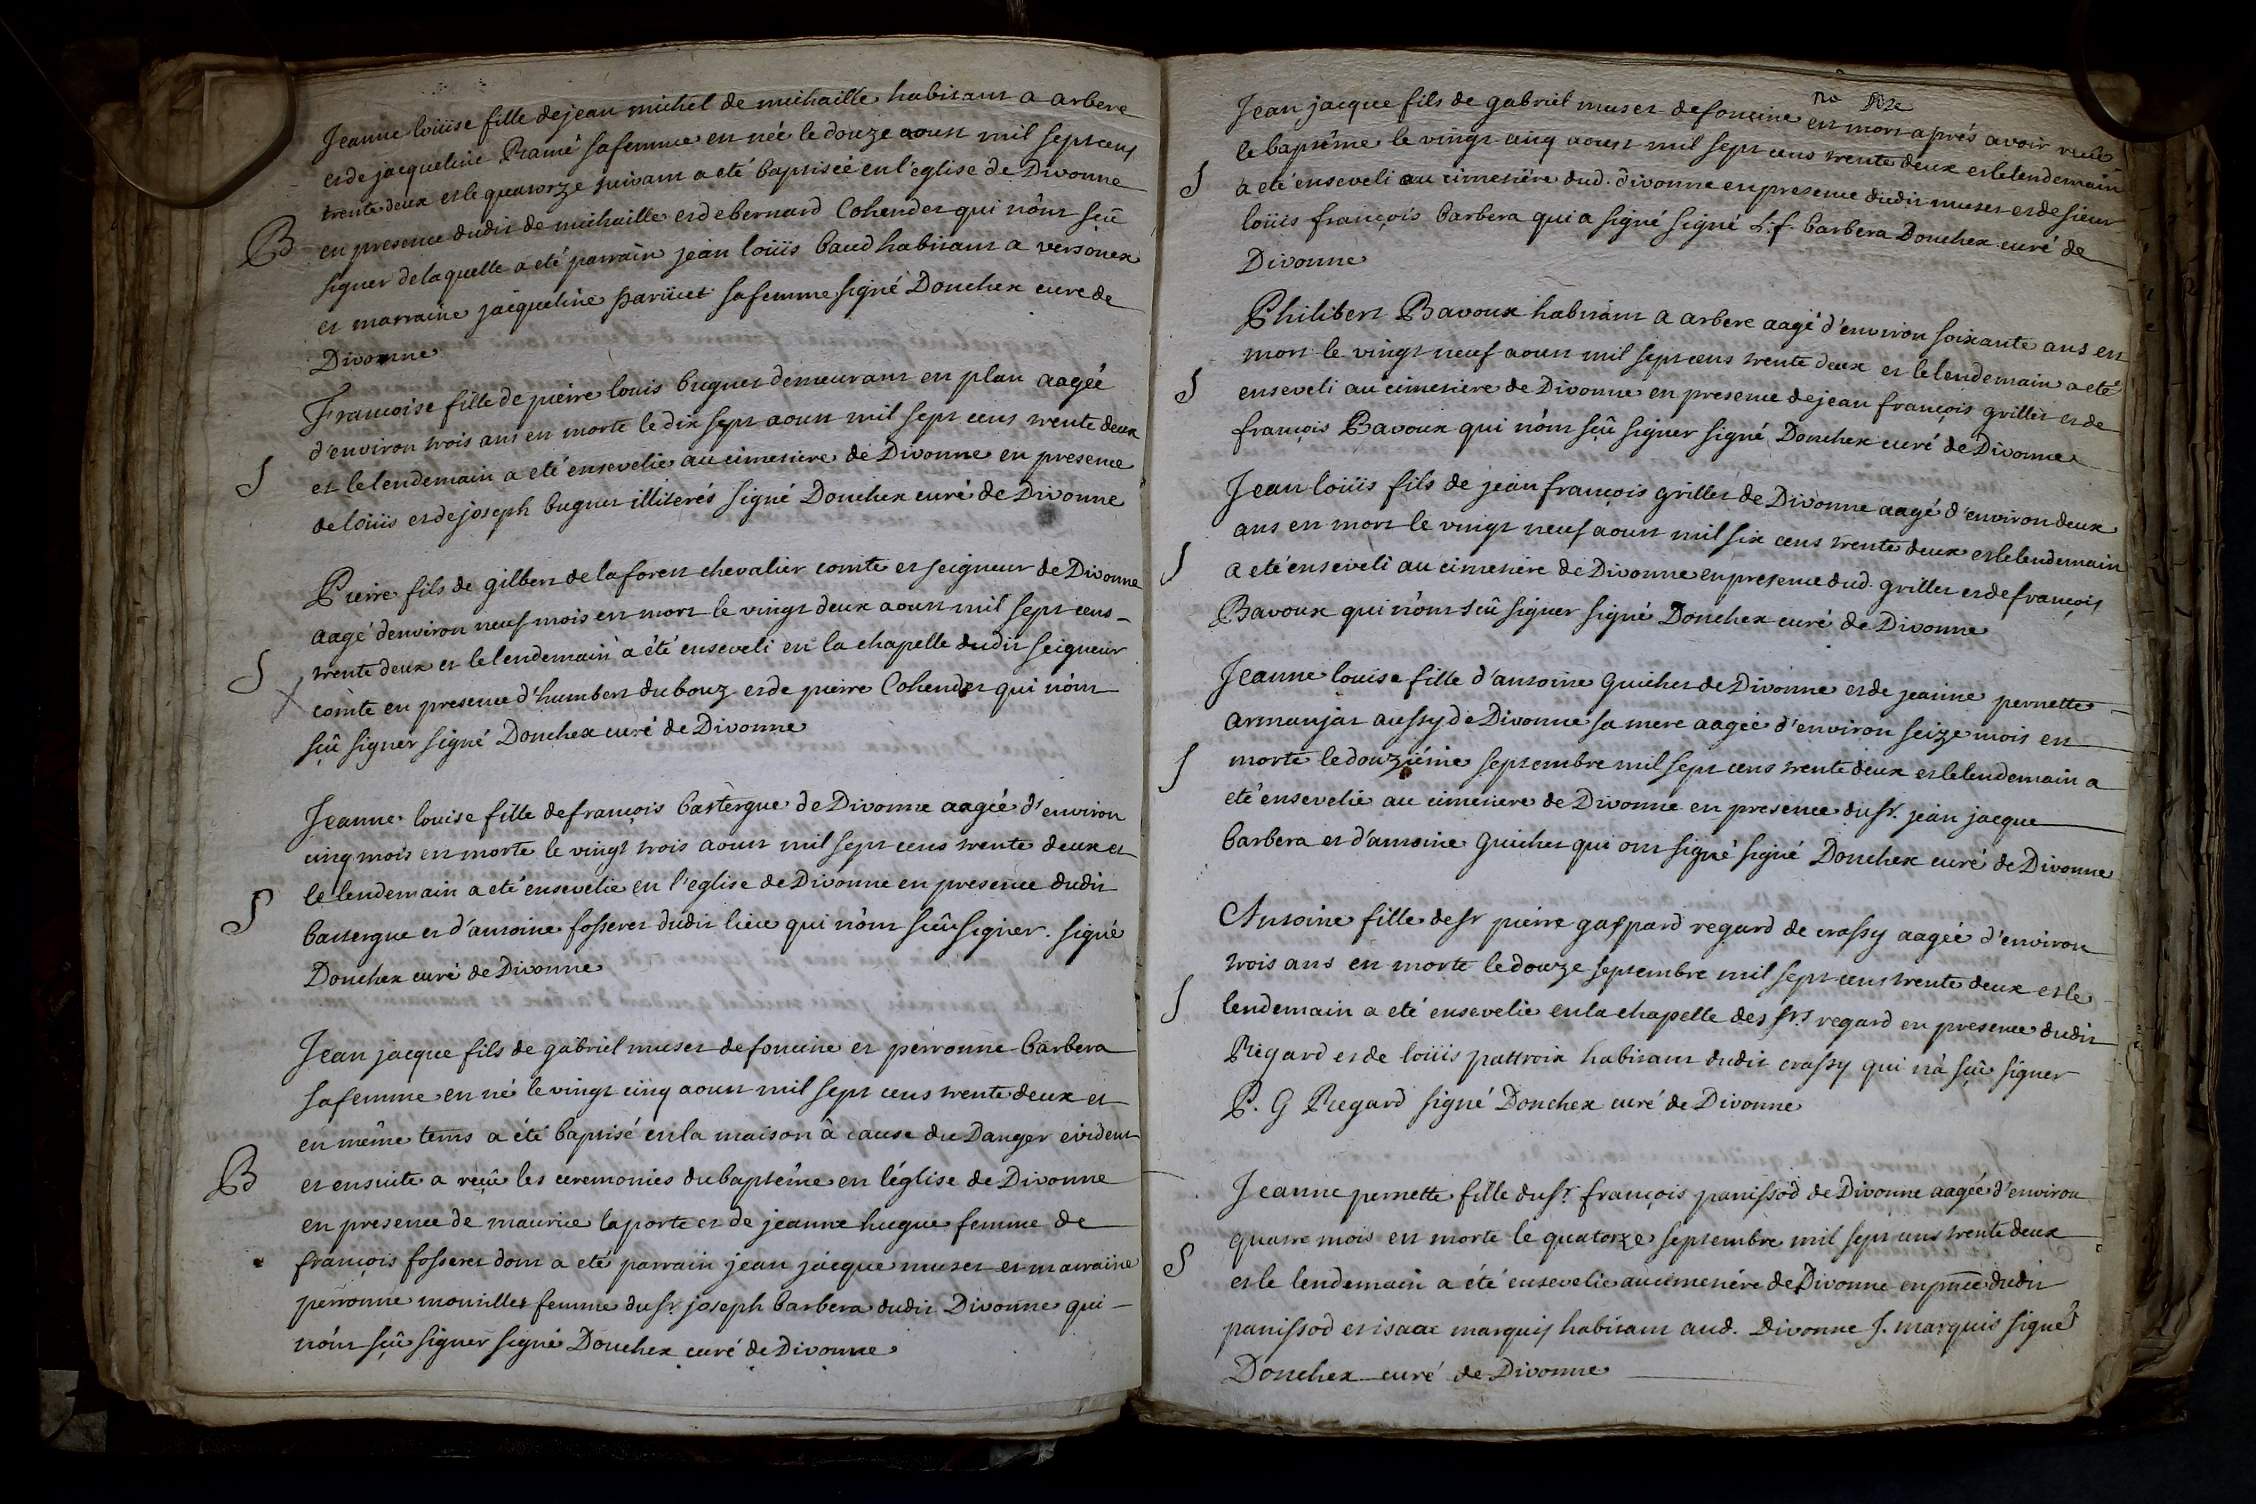 Jeanne loüise fille de jean michel de michaille habitant a arbere
et de jacqueline Ramé sa femme est née le douze aoust mil sept cens
trente deux et le quatorze suivant a eté baptisée en l'eglise de Divonne
B
en presence dudit de michaille et de bernard Cohendet qui n'ont sçû
signer de laquelle a eté parrain jean loüis baud habitant a versonex
et marraine jacqueline sa femme signé Donchex curé de
Divonne
Françoise fille de pierre louis bugnet demeurant en plan aagée
d'environ trois ans est morte le dix sept aoust mil sept cens trente deux
S
et le lendemain a eté ensevelie au cimetiere de Divonne en presence
de loüis et de joseph bugnet illiterés signé Donchex curé de Divonne
Pierre fils de gilbert de la forest chevalier comte et seigneur de Divonne
aagé d'environ neuf mois est mort le vingt deux aoust mil sept cens
S
trente deux et le lendemain à été enseveli en la chapelle dudit seigneur
comte en presence d'humbert du bouz et de pierre Cohendet qui n'ont
sçû signer signé Donchex curé de Divonne
Jeanne louise fille de françois bastergue de Divonne aagée d'environ
cinq mois est morte le vingt trois aoust mil sept cens trente deux et
S
le lendemain a eté ensevelie en l'eglise de Divonne en presence dudit
bastergue et d'antoine fosseret dudit lieu qui n'ont sçû signer. signé
Donchex curé de Divonne
Jean jacque fils de gabriel muset de foncine et perronne barbera
sa femme est né le vingt cinq aoust mil sept cens trente deux et
en même tems a été baptisé en la maison à cause du Danger evident
B
et ensuite a reçû les ceremonies du baptême en l'église de Divonne
en presence de maurice laporte et de jeanne hugue femme de
françois fosseret dont a eté parrain jean jacque muset et marraine
perronne monillet femme du sr. joseph barbera dudit Divonne qui
n'ont sçû signer signé Donchex curé de Divonne
Jean jacque fils de gabriel muset de foncine est mort aprés avoir recû
le baptême le vingt cinq aoust mil sept cens trente deux et le lendemain
S
a eté enseveli au cimetière dud. divonne en presence dudit muset et de sieur
loüis françois barbera qui a signé signé L. f. barbera Donchex curé de
Divonne
Philibert Bavoux habitant a arbere aagé d'environ soixante ans est
mort le vingt neuf aoust mil sept cens trente deux et le lendemain a eté
S
enseveli au cimetiere de Divonne en presence de jean françois grillet et de
françois Bavoux qui n'ont sçû signer signé Donchex curé de Divonne
Jean loüis fils de jean françois grillet de Divonne aagé d'environ deux
ans est mort le vingt neuf aoust mil six cens trente deux et le lendemain
S
a eté enseveli au cimetière de Divonne en presence dud. grillet et de françois
Bavoux qui n'ont sçû signer signé Donchex curé de Divonne
Jeanne louise fille d'antoine Guichet de Divonne et de jeanne pernette
armanjat aussy de Divonne sa mere aagée d'environ seize mois est
S
morte le douziéme septembre mil sept cens trente deux et le lendemain a
eté ensevelie au cimetiere de Divonne en presence du sr. jean jacque
barbera et d'antoine Guichet qui ont signé signé Donchex curé de Divonne
Antoine fille de sr pierre gaspard regard de crassy aagée d'environ
trois ans est morte le douze septembre mil sept cens trente deux et le
S
lendemain a eté ensevelie en la chapelle des srs. regard en presence dudit
Regard et de loüis pattroix habitant dudit crassy qui n'a sçû signer
P. G Regard signé Donchex curé de Divonne
Jeanne pernette fille du sr. françois panissod de Divonne aagée d'environ
quatre mois est morte le quatorze septembre mil sept cens trente deux
S
et le lendemain a été ensevelie au cimetiére de Divonne en pnce dudit
panissod et isaac marquis habitant aud. Divonne J. marquis signé
Donchex curé de Divonne